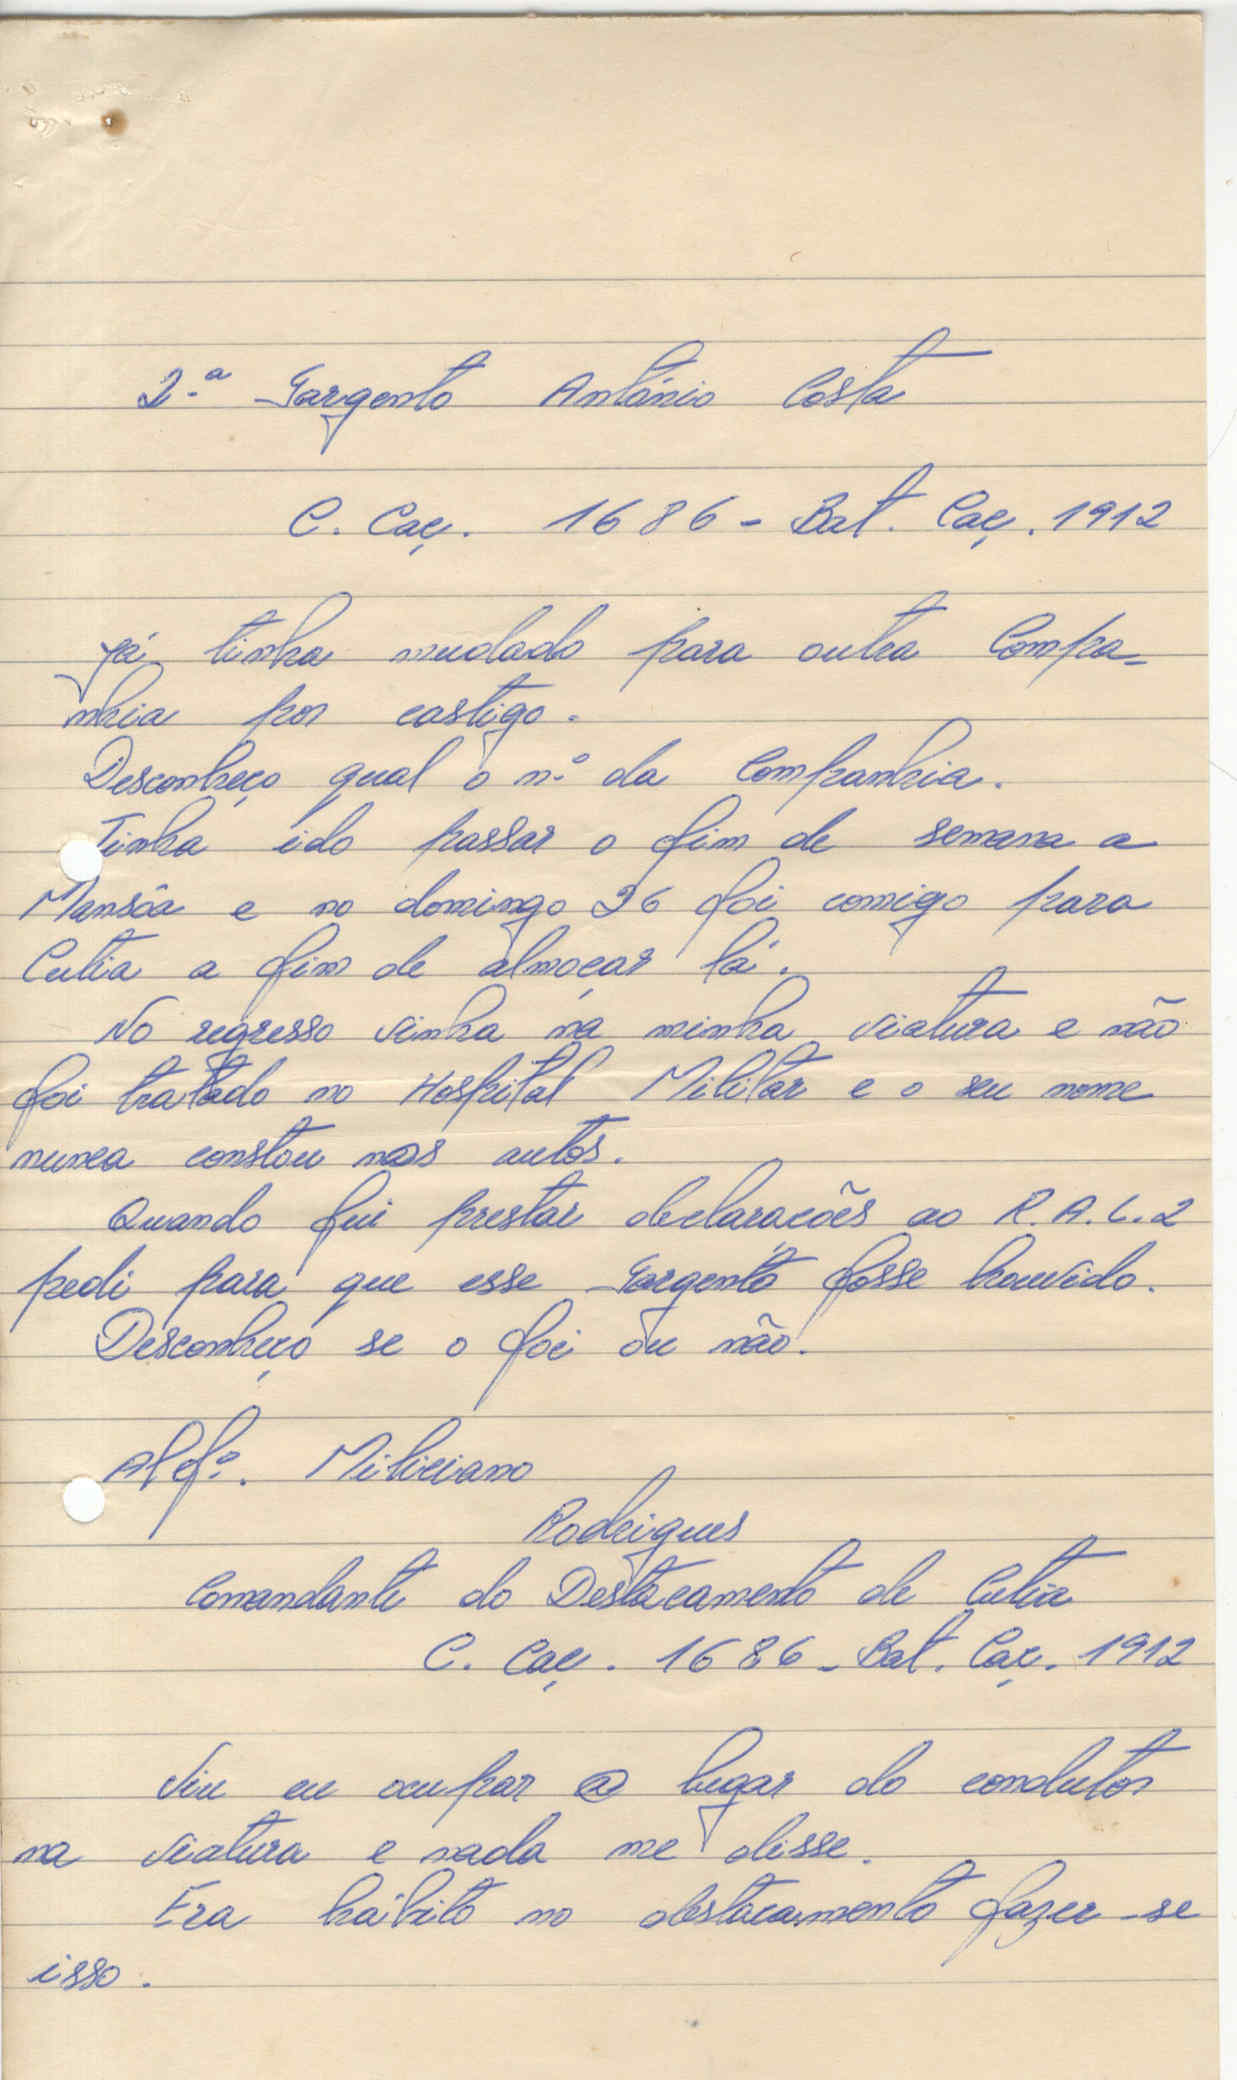 2.ª Sargento António Costa
C. Caç. 1686 - Bat. Caç. 1912
Já tinha mudado para outra Compa-
nhia por castigo.
Desconheço qual o n.º da Companhia.
Tinha ido passar o fim de semana a
Mansôa e no domingo 26 foi comigo para
Cutia a fim de almoçar lá.
No regresso vinha na minha viatura e não
foi tratado no Hospital Militar e o seu nome
nunca constou nos autos.
Quando fui prestar declarações ao R.A.L.2
pedi para que esse Sargento fosse houvido.
Desconheço se o foi ou não.
Alfº. Miliciano
Rodrigues
Comandante do Destacamento de Cutia
C. Caç. 1686 - Bat. Caç. 1912
Viu eu ocupar o lugar do condutor
na viatura e nada me disse.
Era hábito no destacamento fazer-se
isso.